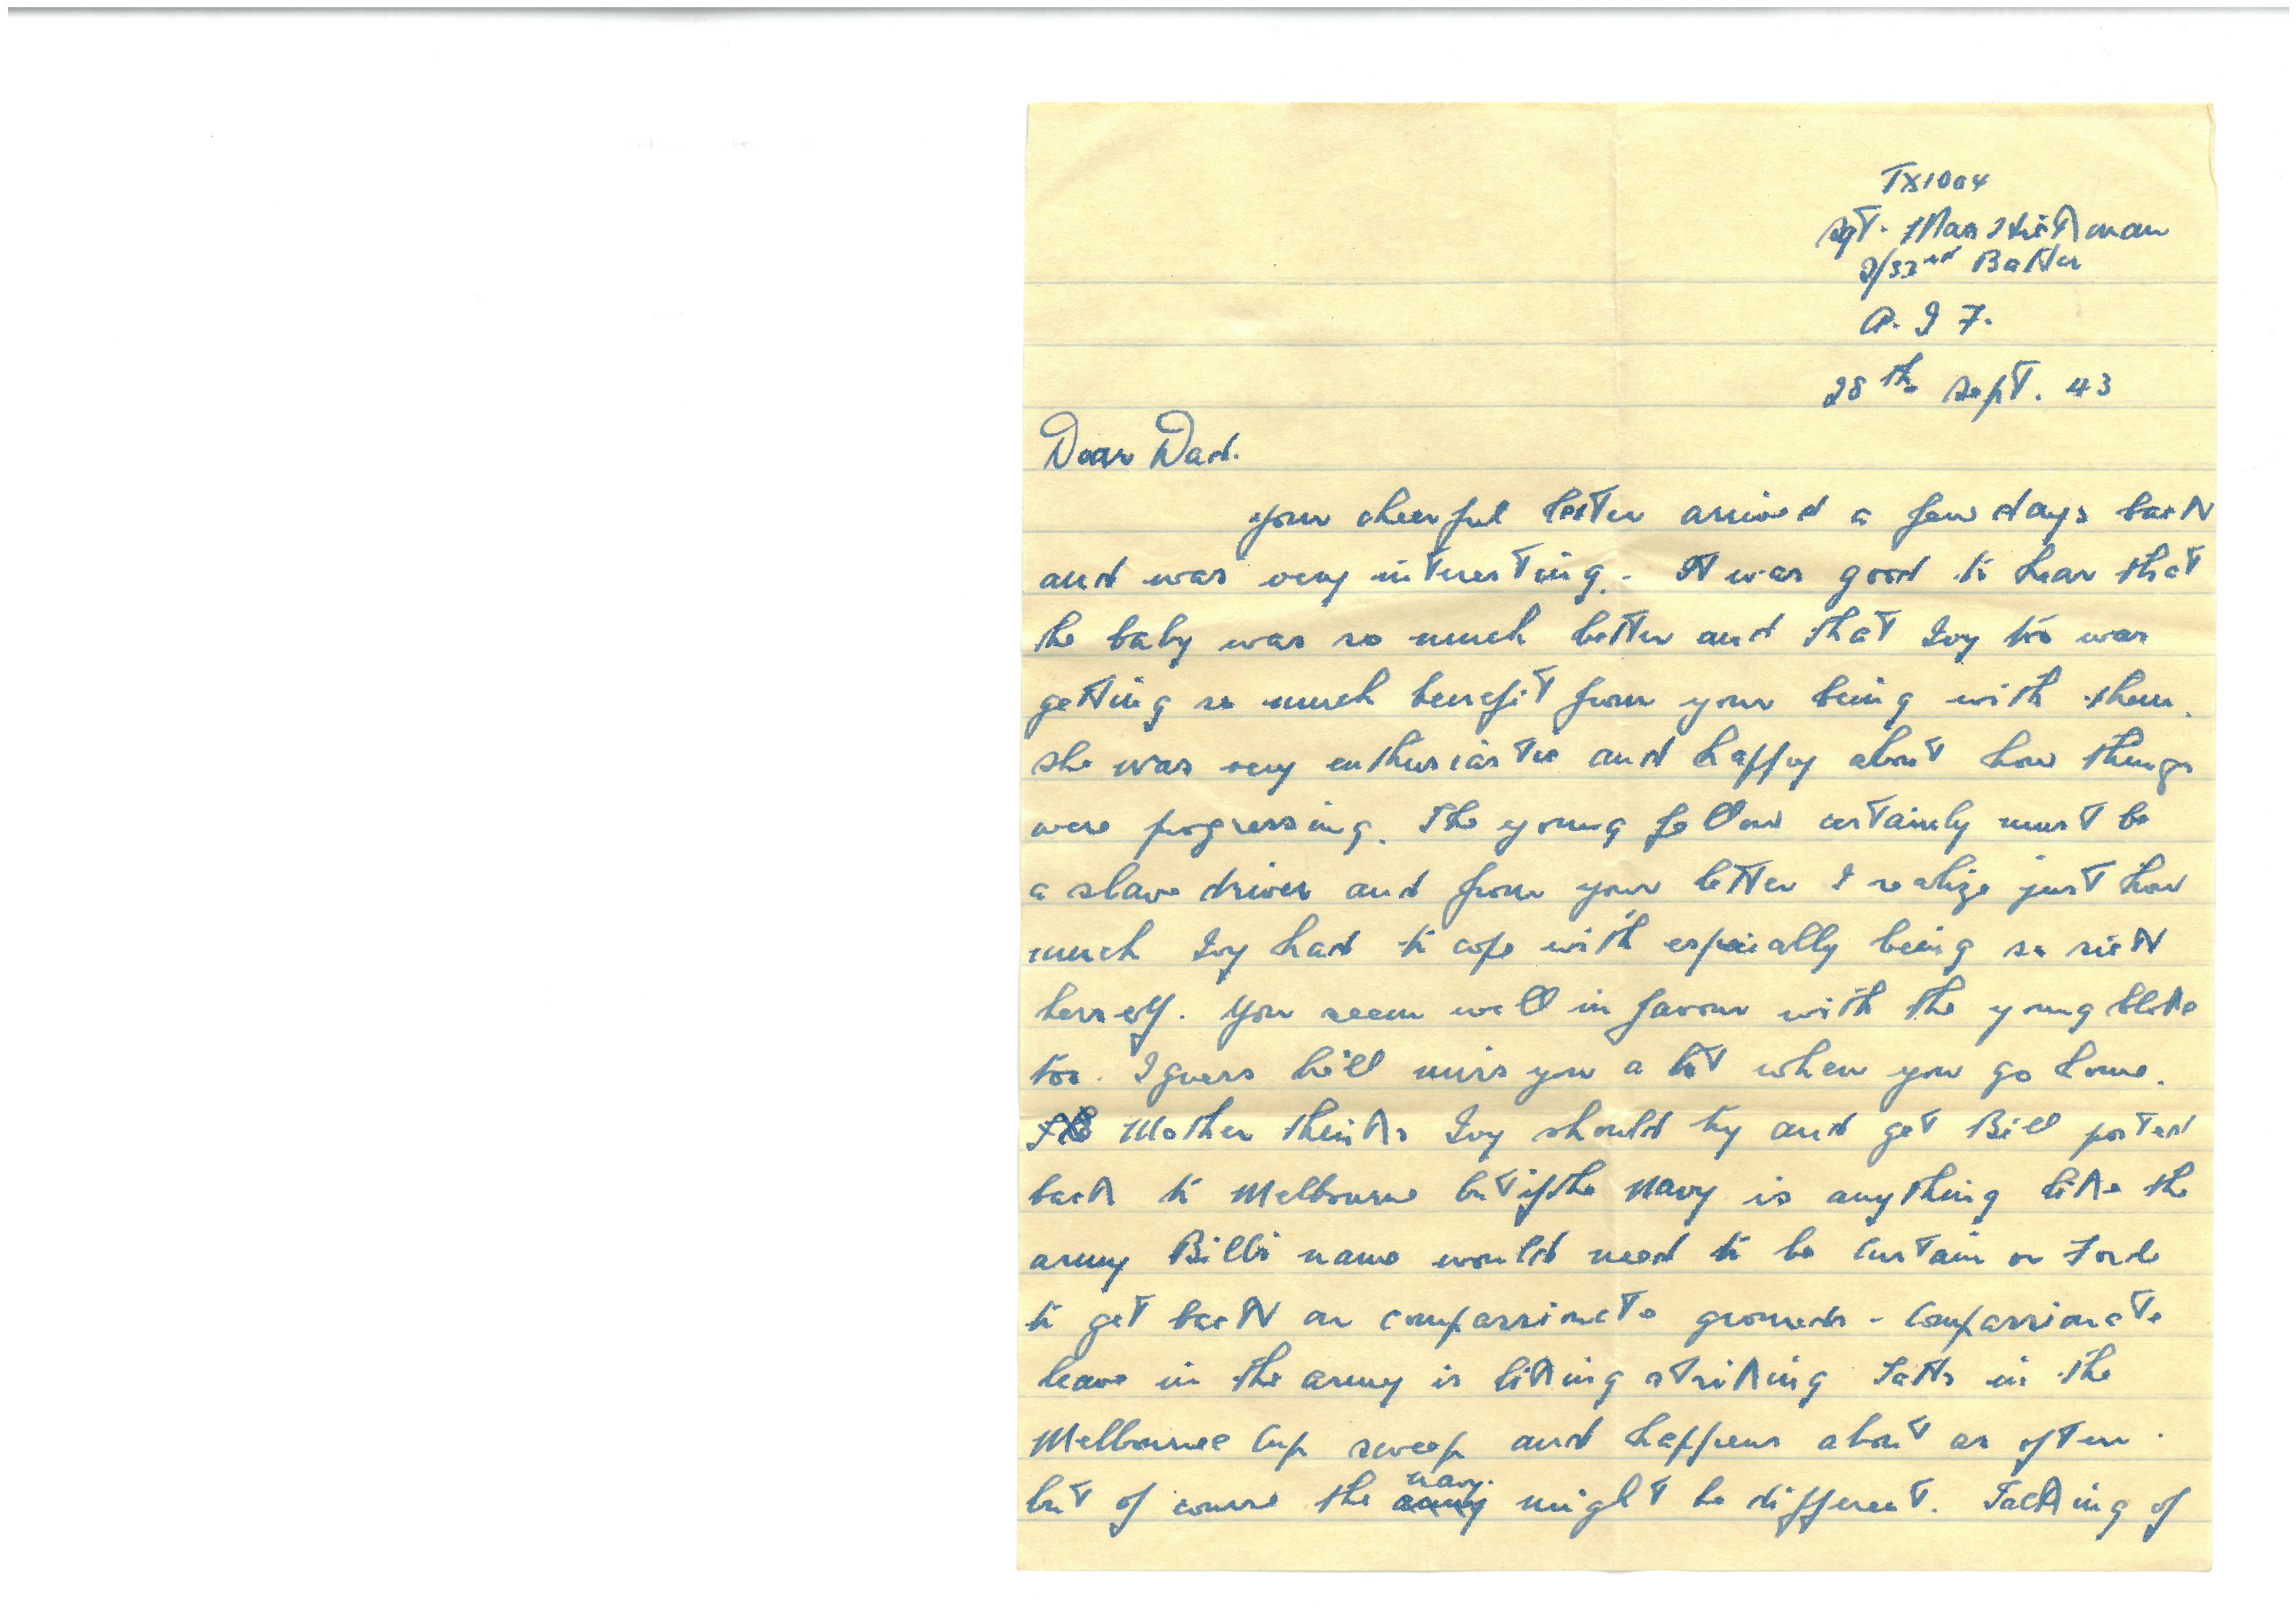 TX1004
Sgt. Max Hickman
2/32nd Battn
A. I F.
28th Sept. 43
Dear Dad.
Your cheerful letter arrived a few days back
and was very interesting. It was good to hear that
the baby was so much better and that Ivy too was
getting so much benefit from your being with them.
She was very enthusiastic and happy about how things
were progressing. The young fellow certainly must be
a slave driver and from your letter I realize just how
much Ivy had to cope with especially being so sick
herself. You seem well in favour with the young bloke
too. I guess he'll miss you a bit when you go home.
Mother thinks Ivy should try and get Bill posted
back to Melbourne but if the Navy is anything like the
army Bill's name would need to be Curtain or Forde
to get back on compassionate grounds - Compassionate
leave in the army is liking striking Tatts in the
Melbourne Cup sweep and happens about as often.
but of course the army navy. might be different. Talking of